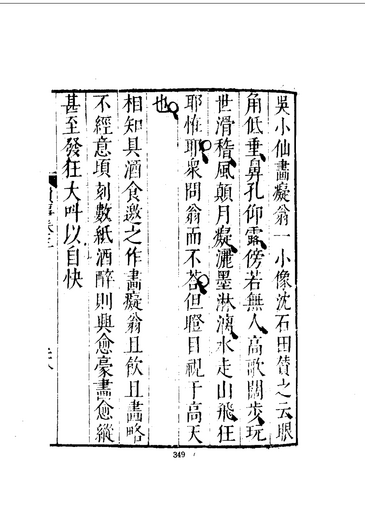 吳小仙畵癡翁一小像沈石田贊之云眼
角低垂鼻孔仰露傍若無人高歌闊步玩
世滑稽風顛月癡灑墨淋漓水走山飛狂
耶怪耶衆問翁而不荅但瞪目視于高天
也
相知具酒食邀之作畵癡翁且飲且畵略
不經意頃刻數紙酒醉則興愈豪畵愈縱
甚至發狂大呌以自快
349